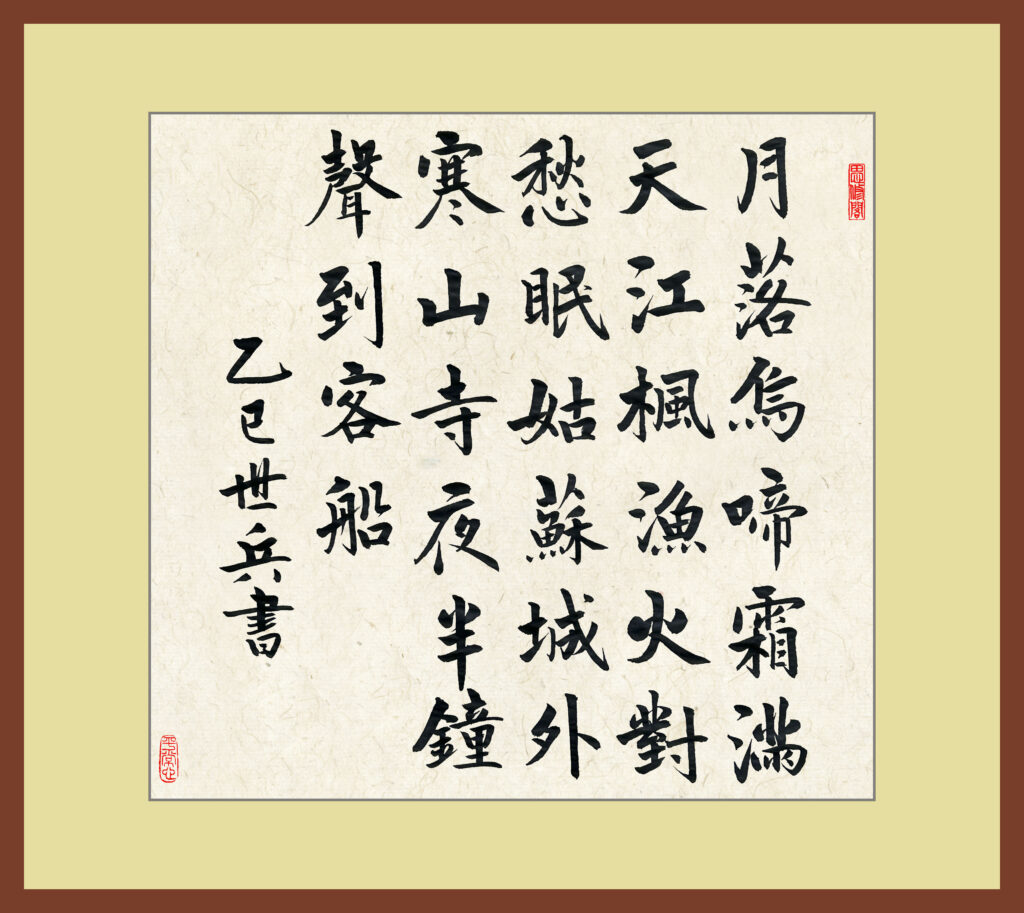 思修閣
月落烏啼霜滿
天江楓漁火對
愁眠姑蘇城外
寒山寺夜半鐘
聲到客船
乙巳世兵書
平常心